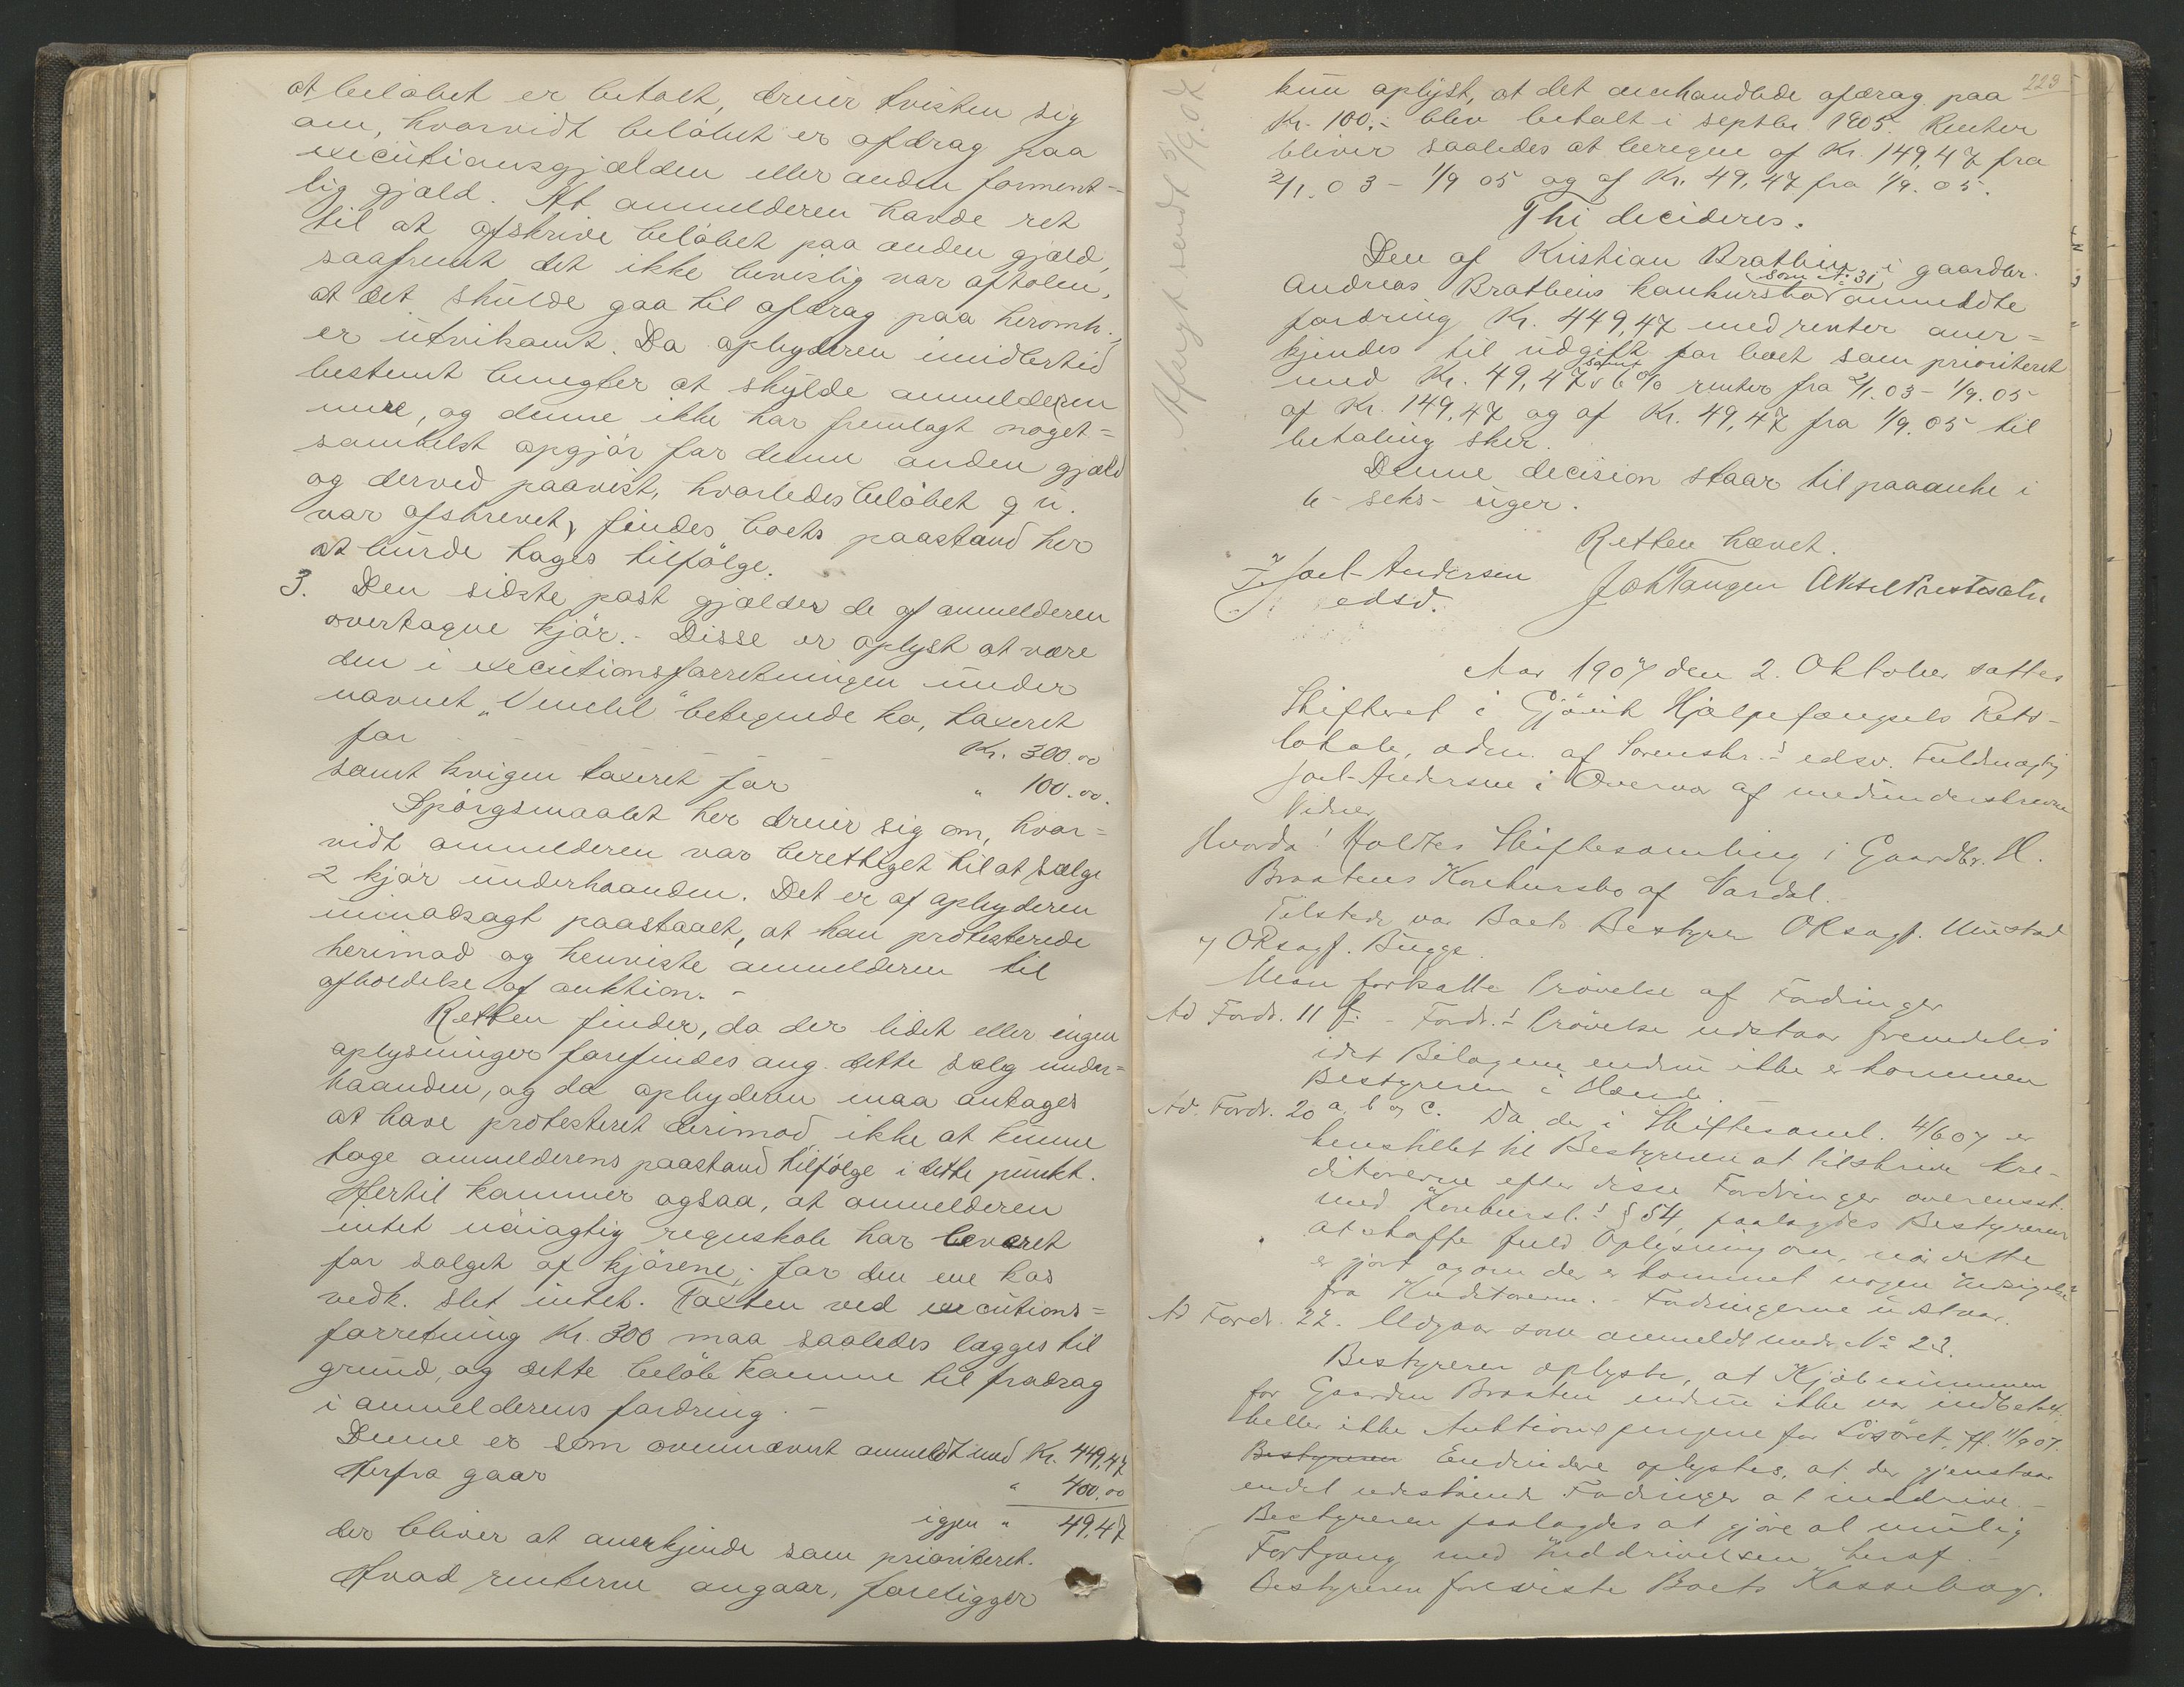 at beløbet er betalt, dreier tvisten sig
om, hvorvidt beløbet er afdrag paa
executionsgjælden eller anden forment-
lig gjæld. At anmelderen havde ret
til at afskrive beløbet paa anden gjæld,
saafremt det ikke bevislig var aftalen,
at det skulde gaa til afdrag paa heromh.,
er utvilsomt. Da opbyderen imidlertid
bestemt benegter at skylde anmelderen
mere, og denne ikke har fremlagt noget=
somhelst opgjør for denne anden gjæld
og derved paavist, hvorledes beløbet q. u.
var afskrevet, findes boets paastand her
at burde tages tilfølge.
3. Den sidste post gjælder de af anmelderen
overtagne kjør. - Disse er oplyst at være
den i executionsforretningen under
navnet "Vendel" betegnede ko, taxeret
for Kr. 300.00
samt kvigen taxeret for " 100.00.
Spørgsmaalet her dreier sig om, hvor=
vidt anmelderen var berettiget til at sælge
2 kjør underhaanden. Det er af opbyderen
uimodsagt paastaaet, at han protesterede
herimod og henviste anmelderen til
afholdelse af auktion. -
Retten finder, da der lidet eller ingen
oplysninger forefindes ang. dette salg under=
haanden, og da opbyderen maa antages
at have protesteret derimod, ikke at kunne
tage anmelderens paastand tilfølge i dette punkt.
Hertil kommer ogsaa, at anmelderen
intet nøiagtig regnskab har leveret
for salget af kjørene; for den ene kos
vedk. slet intet. Taxten ved executions=
forretning Kr. 300 maa saaledes lægges til
grund, og dette beløb komme til fradrag
i anmelderens fordring. -
Denne er som ovennævnt anmeldt med Kr. 449,47
Herfra gaar " 400.00
igjen " 49,47
der bliver at anerkjende som prioriteret.
Hvad renterne angaar, foreligger
223
kun oplyst, at det omhandlede afdrag paa
Kr. 100,- blev betalt i septbr. 1905. Renter
bliver saaledes at beregne af Kr. 149,47 fra
2/1.03 - 1/9 05 og af Kr. 49,47 fra 1/9. 05.
Thi decideres.
Den af Kristian Bratlien i gaardbr.
Andreas Bratliens konkursbo som №: 31 anmeldte
fordring Kr. 449,47 med renter aner=
kjendes til udgift for boet som prioriteret
med Kr. 49,47 samt 6 % renter fra 2/1.03 - 1/9.05
af Kr. 149,47 og af Kr. 49,47 fra 1/9.05 til
betaling sker.
Denne decision staar til paaanke i
6 - seks - uger.
Retten hævet.
Joel-Andersen
edsv.
Joh Tangen Aksel Prestesæter
Afskrift sendt 5/9.07
Aar 1907 den 2. Oktober sattes
Skifteret i Gjøvik Hjælpefængsels Rets-
lokale, adm. af Sorenskr.s edsv. Fuldmægtig
Joel-Andersen i Overvær af medunderskrevne
Vidner
Hvorda! Holdtes Skiftesamling i Gaardbr. H.
Braatens Konkursbo af Vardal.
Tilstede var Boets Bestyrer ORsagf. Mustad
og ORsagf. Bugge.
Man fortsatte Prøvelse af Fordringer
Ad Fordr. 11 f. - Fordr.s Prøvelse udstaar fremdeles
idet Bilagene endnu ikke er kommen
Bestyreren i Hænde.
Ad. Fordr. 20 a, b og c. Da der i Skiftesaml. 4/6 07 er
henstillet til Bestyreren at tilskrive kre-
ditorerne efter disse Fordringer overensst.
med Konkursl.s § 54, paalagdes Bestyreren
at skaffe fuld Oplysning om, naar dette
er gjort og om der er kommet nogen Indsigelse
fra Kreditorerne. - Fordringerne udstaar.
Ad Fordr. 22. Udgaar som anmeldt under № 23.
Bestyreren oplyste, at Kjøbesummen
for Gaarden Braaten endnu ikke var indbetalt,
heller ikke Auktionspengene for Løsøret, jf. 11/9 07.
Bestyreren Endvidere oplystes, at der gjenstaar
endel udestaaende Fordringer at inddrive. -
Bestyreren paalagdes at gjøre al mulig
Fortgang med Inddrivelsen heraf. -
Bestyreren foreviste Boets Kassebog.